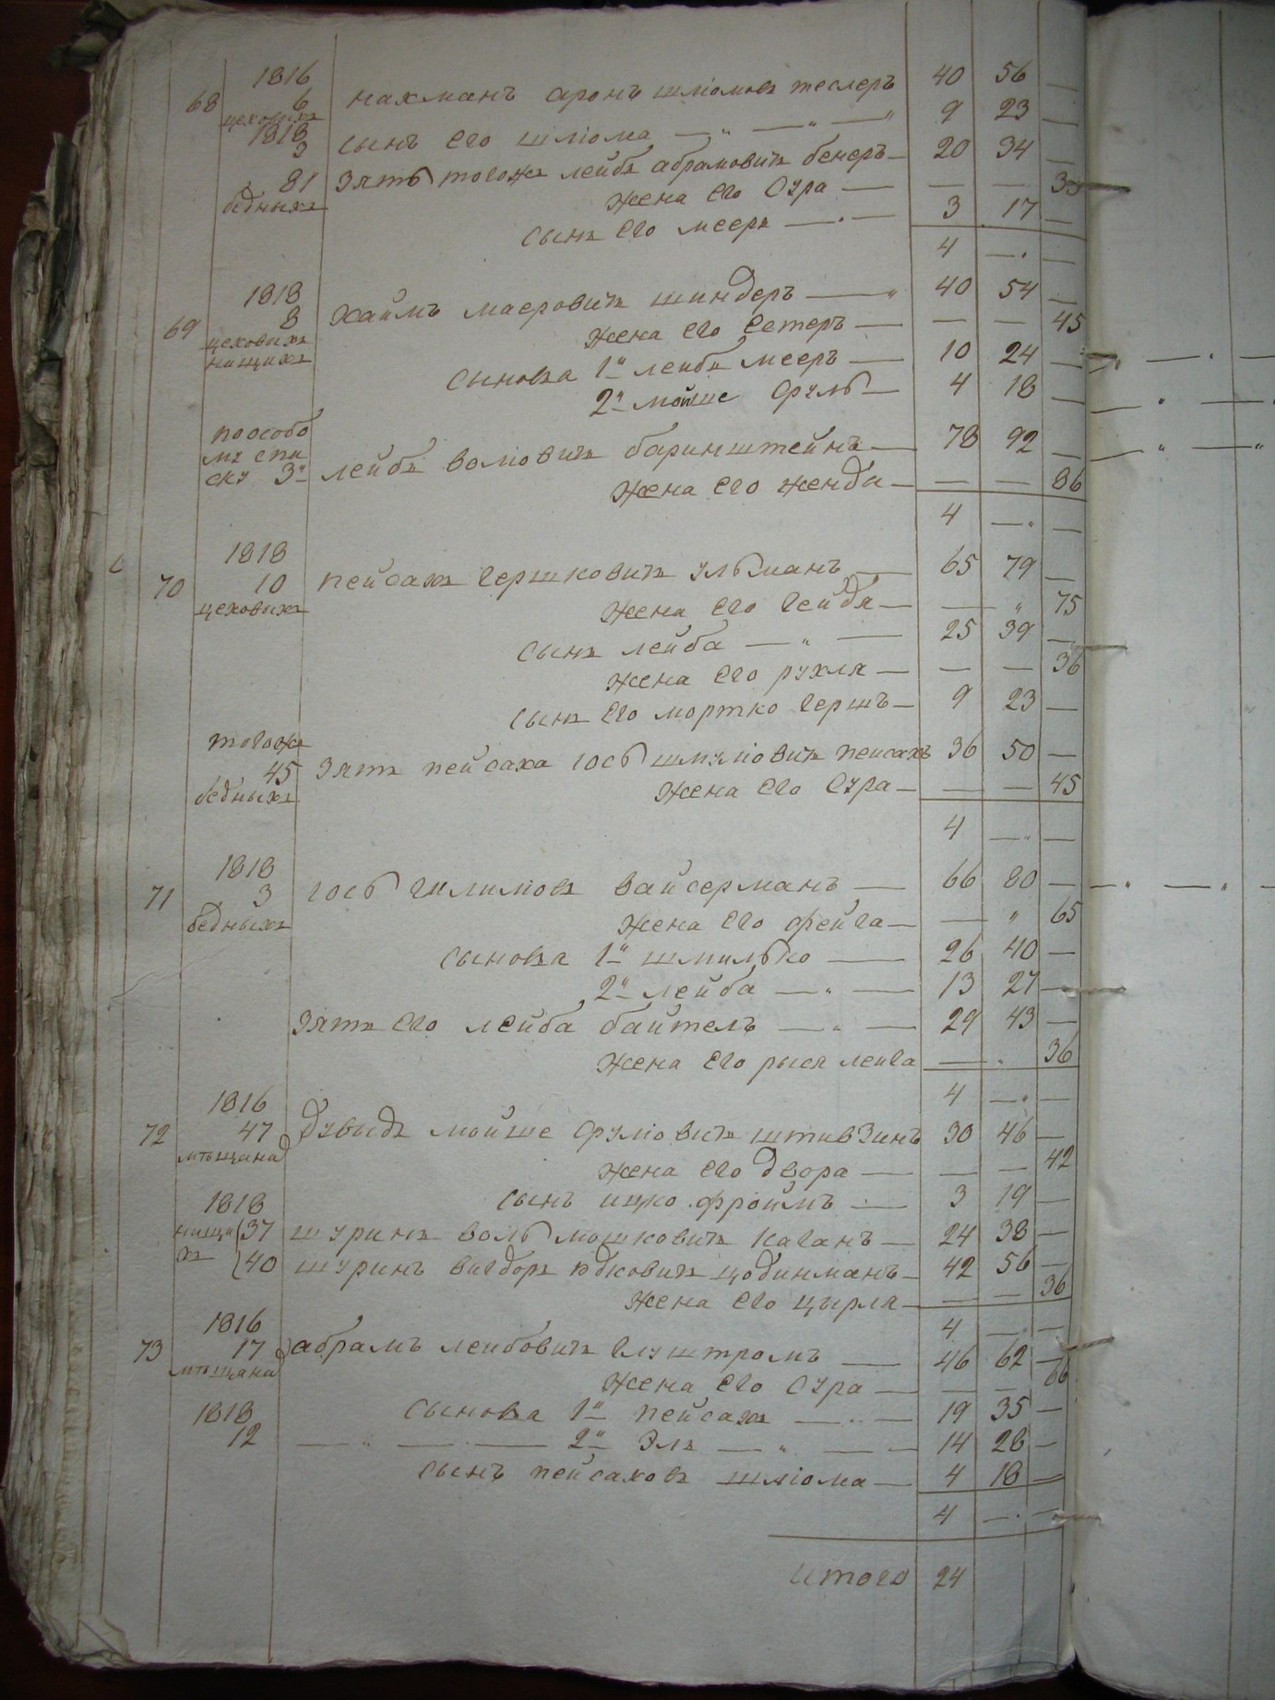 68 1816 6 цеховыхъ нахманъ аронъ шліомовъ теслеръ 40 56 —
1818 3 сынъ его шліома — „ — „ — 9 23 —
81 бѣдныхъ Зять тогожъ лейба абрамовичъ бенеръ — 20 34 —
жена его Сура — — — 33
сынъ его мееръ — . — 3 17 —
4 — . —
69 1818 8 цеховыхъ нищихъ Хаимъ маеровичъ шиндеръ — „ 40 54 —
жена его Естеръ — — — 45
сыновья 1й лейба мееръ — 10 24 —
2й мойше сруль — 4 18 —
поособо
му спи
ску 3й лейба воліовичъ баринштейнъ — 78 92 —
жена его женди — — — 86
4 — . —
70 1818 10 цеховыхъ пейсахъ Гершковичъ ульманъ — 65 79 —
жена его Гейдя — — „ 75
сынъ лейба — „ — 25 39 —
жена его рухля — — — 36
сынъ его мортко Гершъ — 9 23 —
тогожъ
45 бѣдныхъ Зять пейсаха іось шмуліовичъ пейсахъ 36 50 —
жена его Сура — — — 45
4 — „ —
71 1818 3 бѣдныхъ іось вайсерманъ — 66 80 —
жена его фейга — — „ 65
сыновья 1й шмилько — 26 40 —
2й лейба — „ — 13 27 —
Зять его лейба байтель — „ — 29 43 —
жена его рыся лейга — . 36
4 — . —
72 1816 47 мѣщана дувыдъ мойше сруліовичъ штивзинъ 30 46 —
жена его двора — — — 42
1818 сынъ ицко фроимъ — 3 19 —
нищи
хъ 37 шуринъ воль мошковичъ Каганъ — 24 38 —
40 шуринъ вигдоръ юдковичъ цодикманъ — 42 56 —
жена его цырля — — — 36
4 — . —
73 1816 17 мѣщана абрамъ лейбовичъ Глуштромъ — 46 62 —
жена его Сура — — — 66
1818 сыновья 1й пейсахъ — „ — 19 35 —
12 — „ — . — 2й Элъ — „ — 14 28 —
сынъ пейсаховъ шліома — 4 18 —
4 — . —
Итого 24